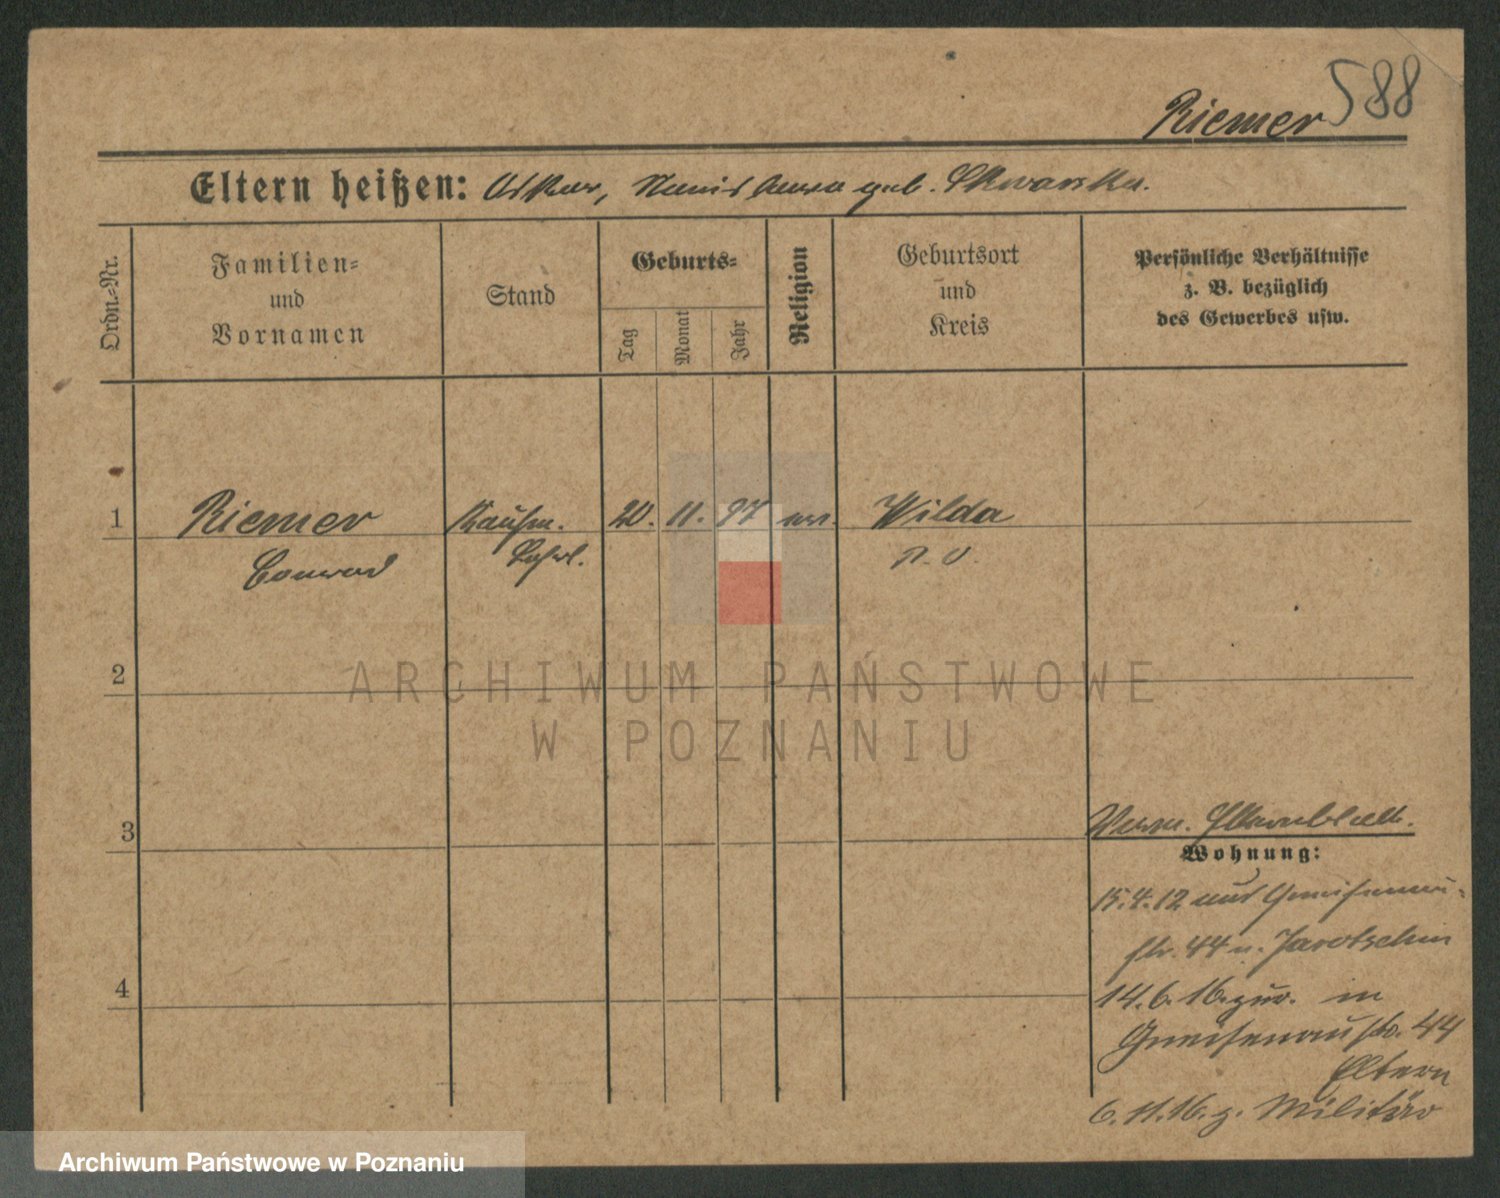 588
Riemer
Eltern heißen: Oskar, geb. Skwarska.
Ordn.-Nr.
Familien- und Vornamen
Stand
Geburts-
Tag
Monat
Jahr
Religion
Geburtsort und Kreis
Persönliche Verhältnisse
z. B. bezüglich
des Gewerbes usw.
1 Riemer Kaufm. 20. 11. 97 Wilda
Conrad Lehrl. P. O.
2
ARCHIWUM PAŃSTWOWE
W POZNANIU
3
Verm. Elternblatt.
Wohnung:
15.4.12 aus Gneisenau-
str. 44 n. Jarotschin
4
14.6.16. zur. in
Gneisenaustr. 44
Eltern
6.11.16. z. Militär
Archiwum Państwowe w Poznaniu